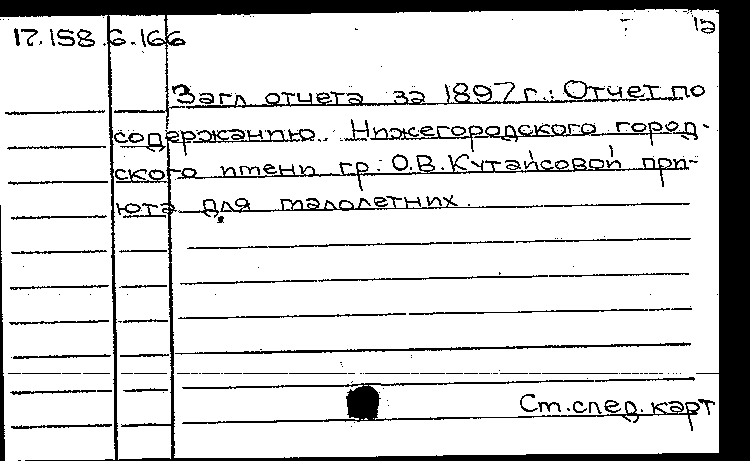 17.158.6.166
1а
Загл отчета за 1897 г.: Отчет по
содержанию Нижегородского город-
ского имени гр. О.В.Кутайсовой при-
юта для малолетних.
См.след.карт